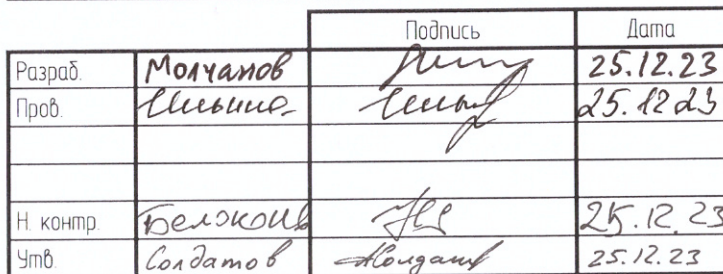 Подпись Дата
Разраб. Молчанов 25.12.23
Пров. Ильина 25.12.23
Н. контр. 25.12.23
Утв. Солдатов 25.12.23